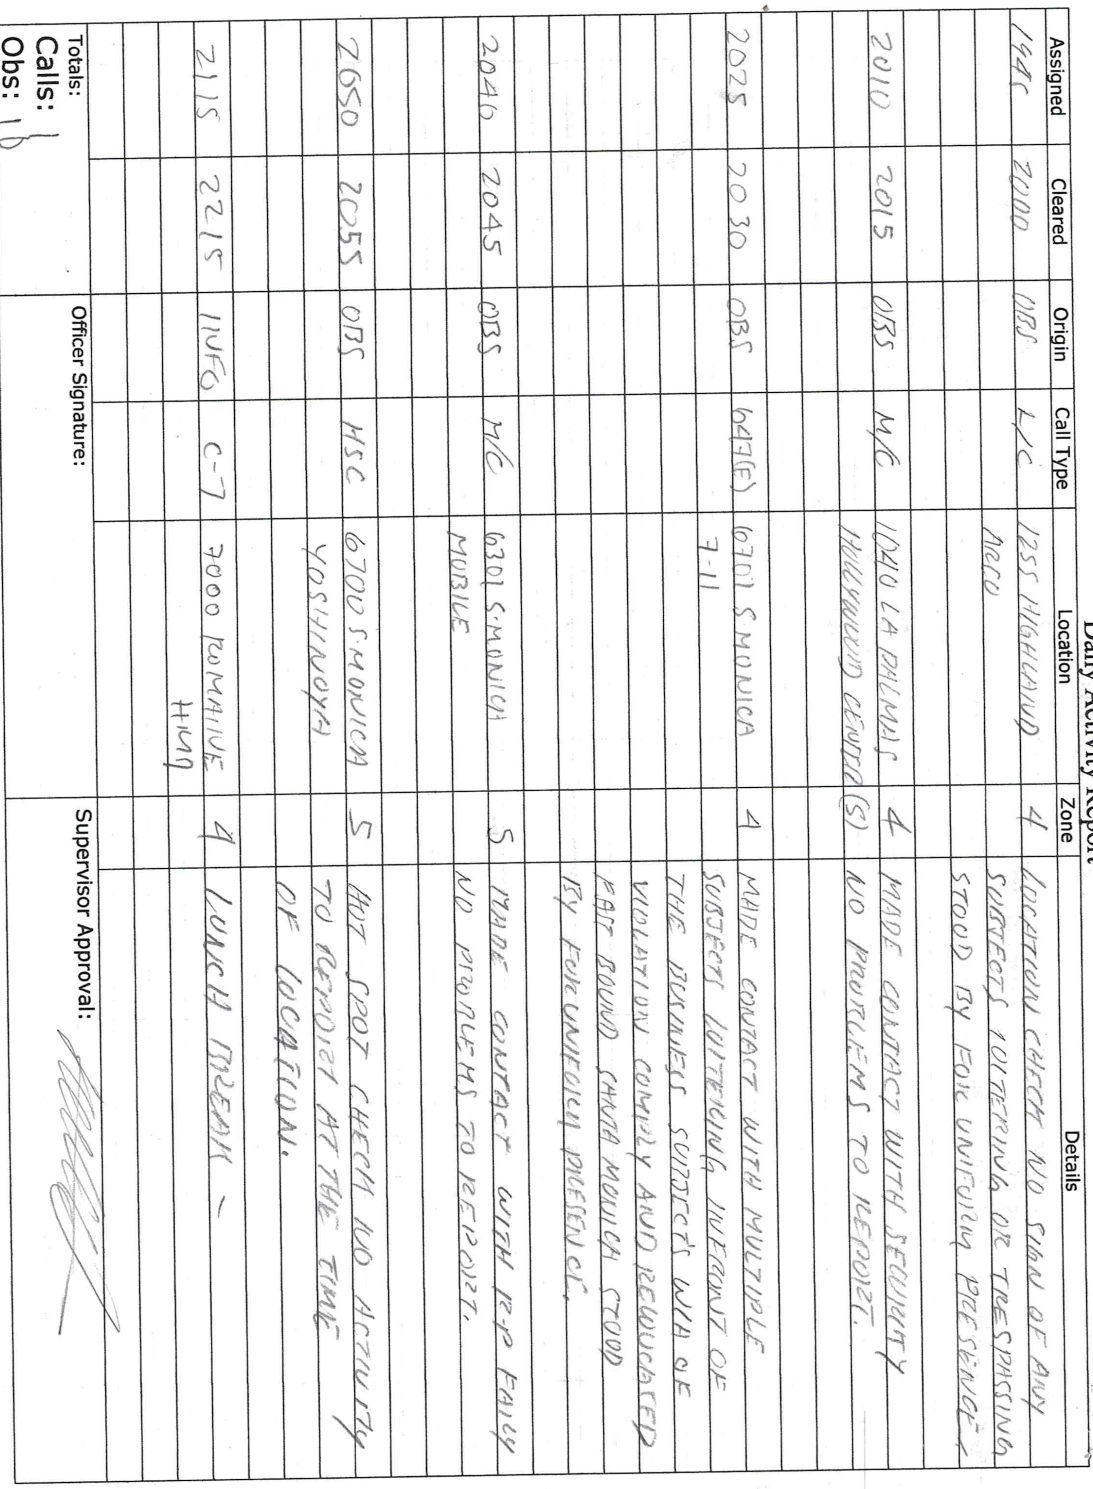 Daily Activity Report
Assigned Cleared Origin Call Type Location Zone Details
1945 2000 OBS L/C 1255 HIGHLAND 4 LOCATION CHECK NO SIGN OF ANY
ARCO SUBJECTS LOITERING OR TRESPASSING
STOOD BY FOR UNIFORM PRESENCE,
2010 2015 OBS M/C 1040 LA PALMAS 4 MADE CONTACT WITH SECURITY
HOLLYWOOD CENTER (S) NO PROBLEMS TO REPORT.
2025 2030 OBS 647(E) 6701 S. MONICA 4 MADE CONTACT WITH MULTIPLE
7-11 SUBJECTS LOITERING INFRONT OF
THE BUSINESS SUBJECTS W/A OF
VIOLATION COMPLY AND RELOCATED
EAST BOUND SANTA MONICA STOOD
BY FOR UNIFORM PRESENCE.
2040 2045 OBS M/C 6301 S. MONICA 5 MADE CONTACT WITH R-P
MOBILE NO PROBLEMS TO REPORT.
2050 2055 OBS HSC 6700 S. MONICA 5 HOT SPOT CHECK NO ACTIVITY
YOSHINOYA TO REPORT AT THE TIME
OF LOCATION.
2115 2215 INFO C-7 7000 ROMAINE 4 LUNCH BREAK -
Totals: Officer Signature: Supervisor Approval:
Calls: 1
Obs: 16